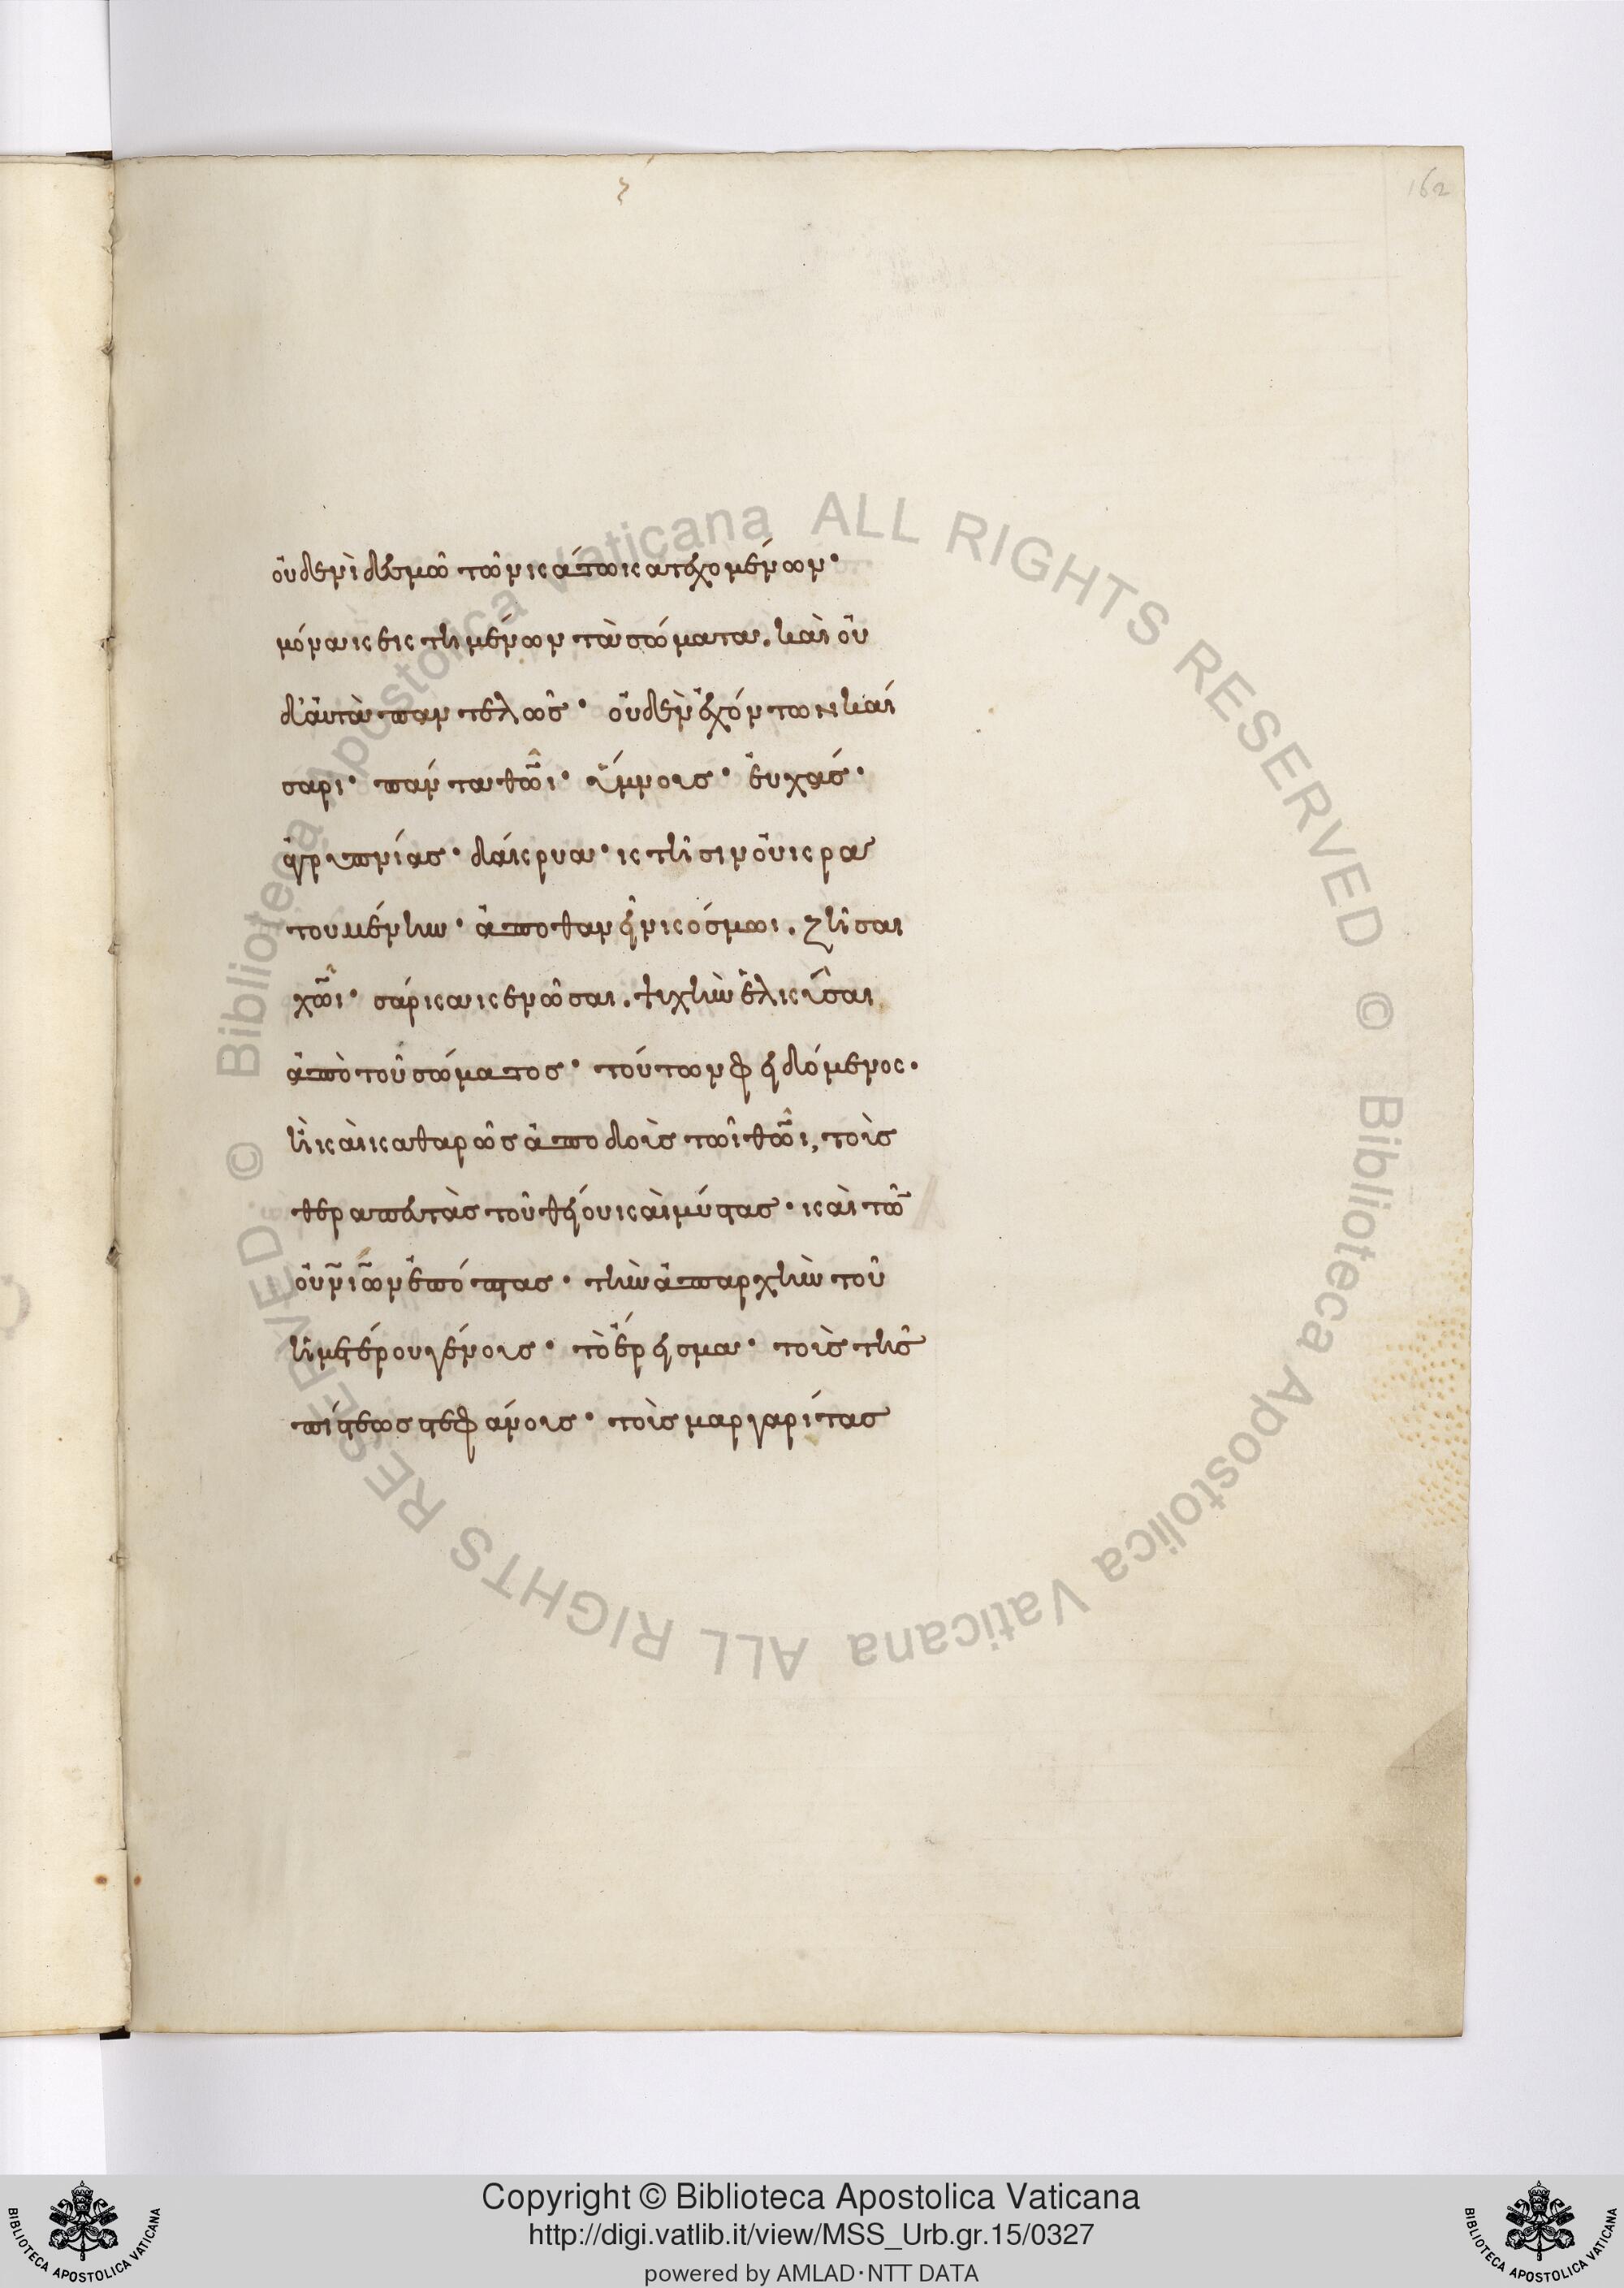 162
οὐδενὶ δεσμῶ τῶν κάτω κατεχομένων·
μόνα κεκτημένων τὰ σώματα. καὶ οὐ
δ' αὐτὰ παντελῶς· οὐδὲν ἐχόντων καί
σαρι· πάντα θ̅ω̅ι· ὕμνους· εὐχάς·
ἀγρυπνίας· δάκρυα· κτῆσιν οὐ κρα
τουμένην· ἀποθανεῖν κόσμωι. ζῆσαι
χ̅ω̅ι· σάρκα κενῶσαι. ψυχὴν ἑλκῦσαι
ἀπὸ τοῦ σώματος· τούτων φειδόμενος.
ἢ καὶ καθαρῶς ἀποδοὺς τῶι θ̅ω̅ι, τοὺς
θεραπευτὰς τοῦ θείου καὶ μύστας· καὶ τῶ̅
οὐ̅ν̅ι̅ων ἐπόπτας· τὴν ἀπαρχὴν τοῦ
ἡμετέρου γένους· τὸ ἔρεισμα· τοὺς τῆς
πίστεως στεφάνους· τοὺς μαργαρίτας
Copyright © Biblioteca Apostolica Vaticana
http://digi.vatlib.it/view/MSS_Urb.gr.15/0327
powered by AMLAD·NTT DATA
BIBLIOTECA APOSTOLICA VATICANA
BIBLIOTECA APOSTOLICA VATICANA
© Biblioteca Apostolica Vaticana ALL RIGHTS RESERVED
© Biblioteca Apostolica Vaticana ALL RIGHTS RESERVED